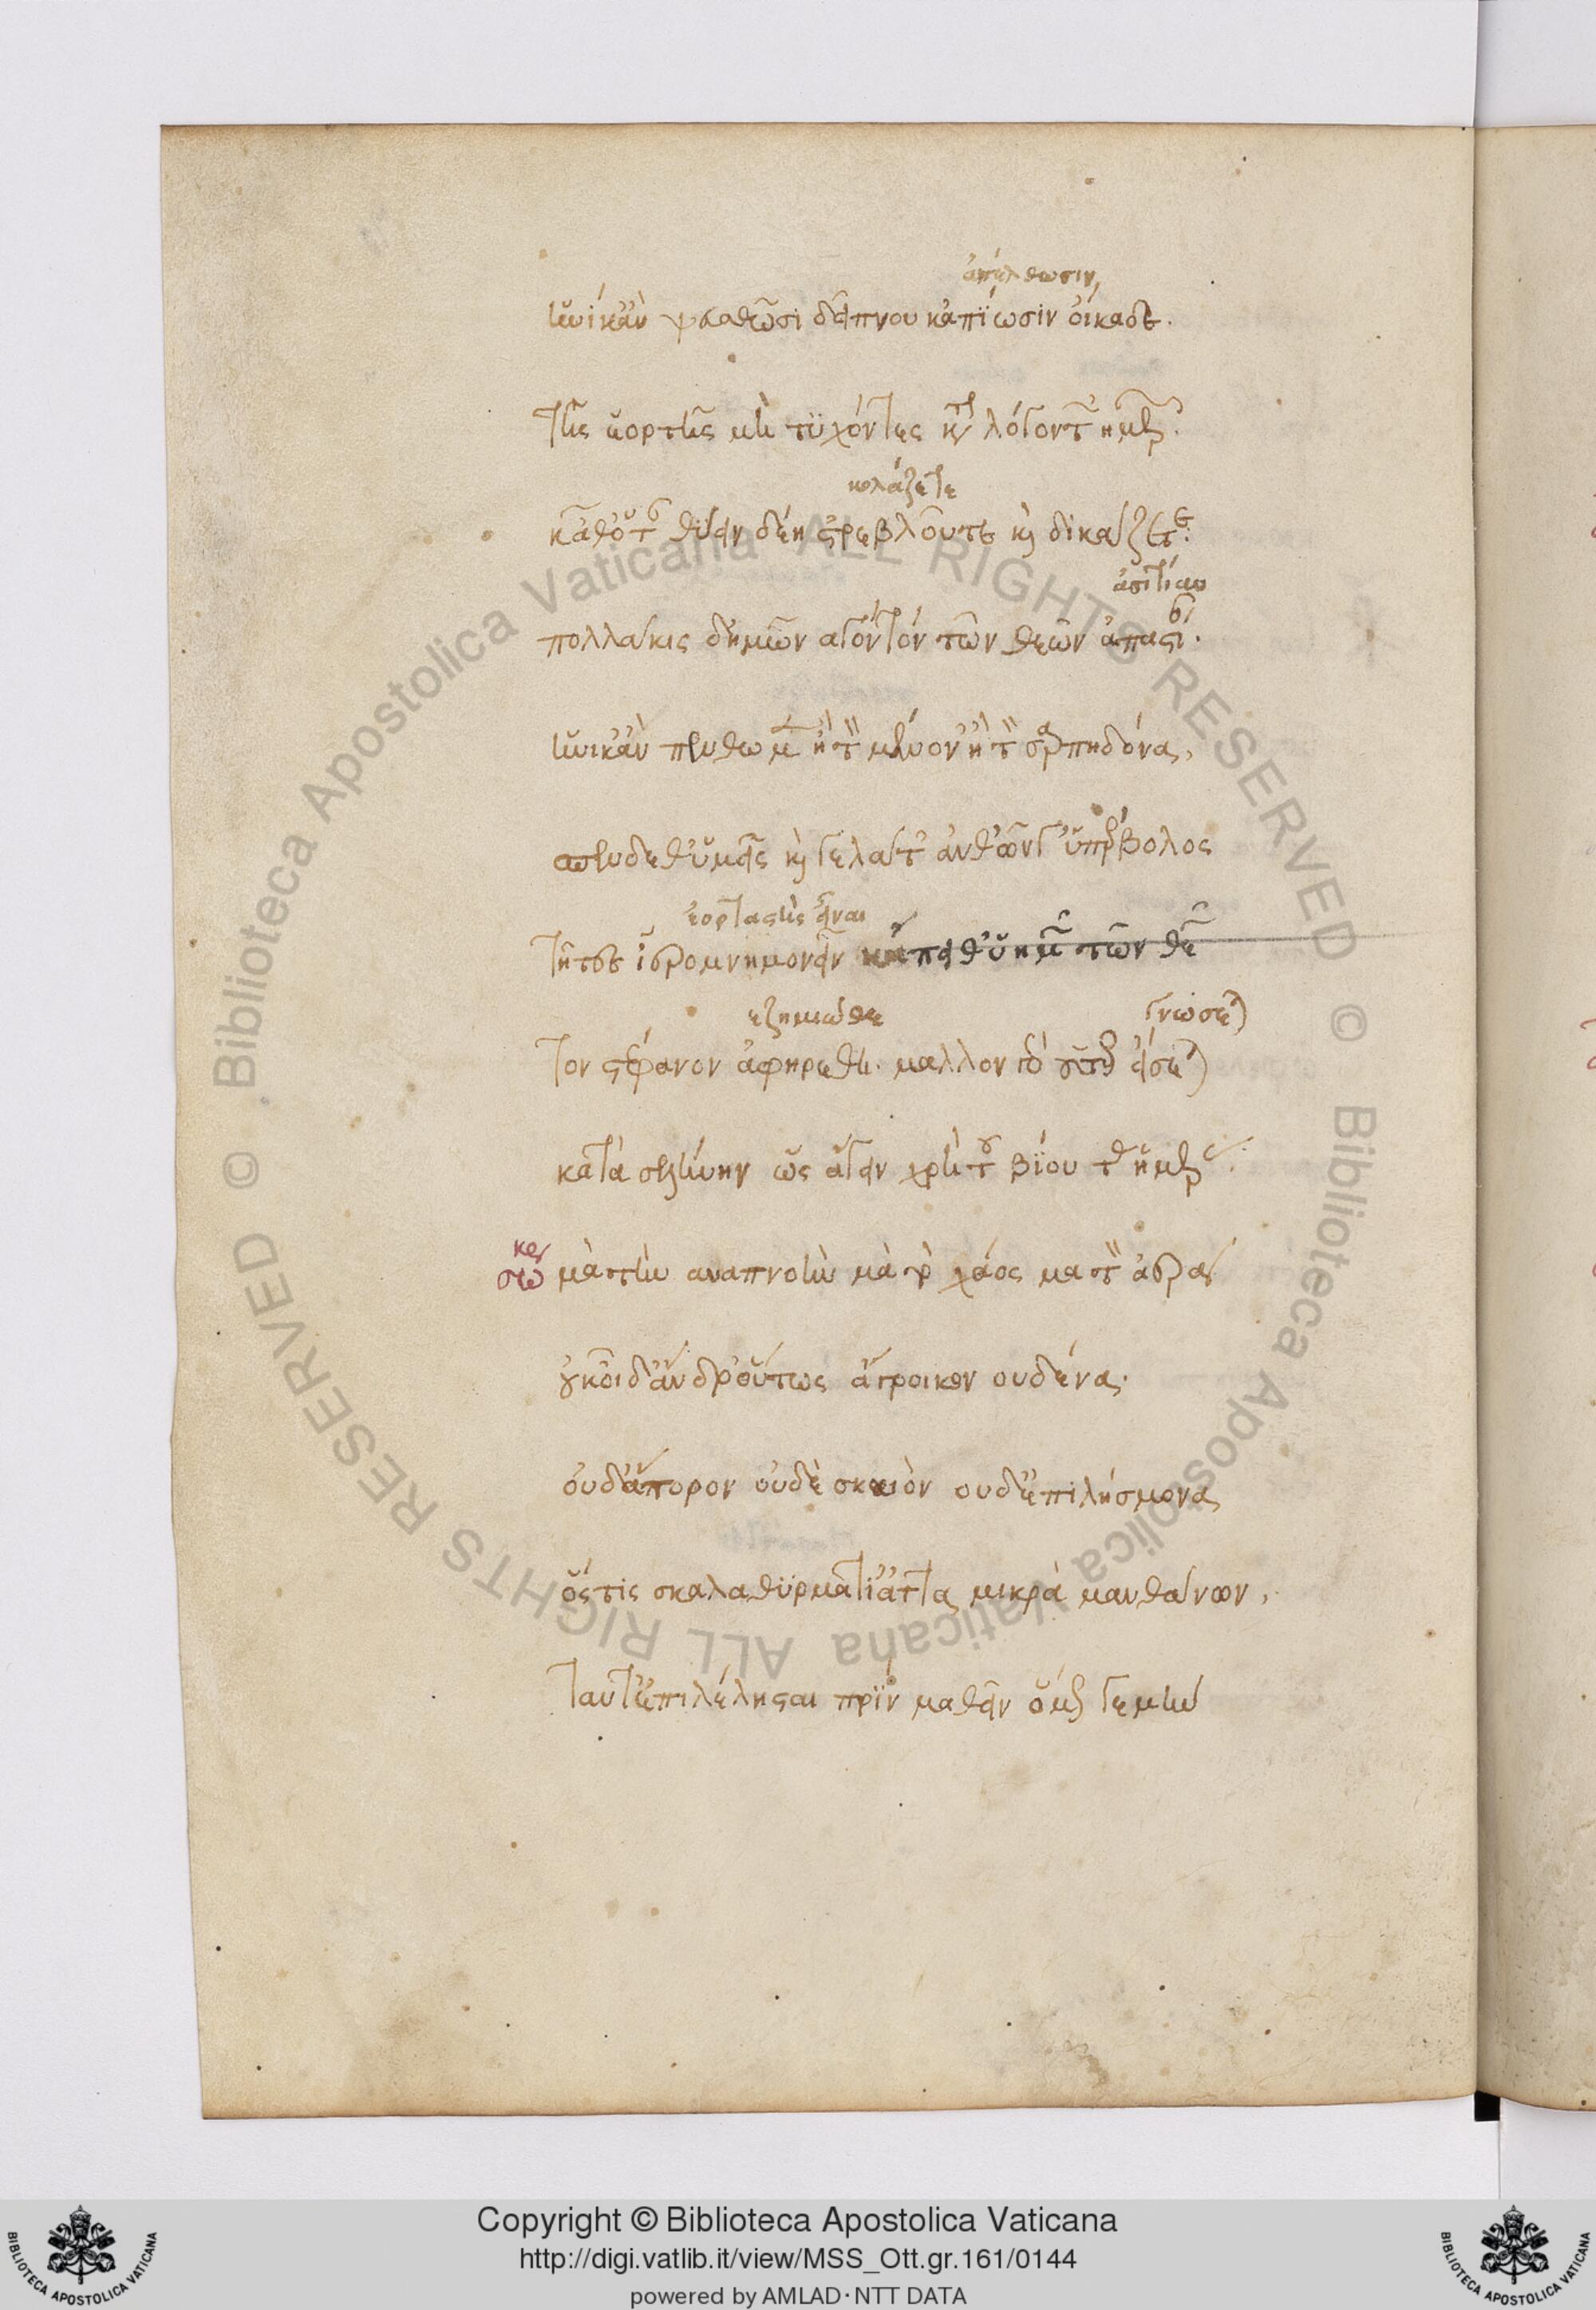 ἀπέλθωσιν
ἡνίκἂν ψευσθῶσι δείπνου κἀπίωσιν οἴκαδε.
τῆς ἑορτῆς μὴ τυχόντες κατὰ λόγον τῶν ἡμερῶν.
κολάζετε
κᾆθ' ὅταν θύειν δέῃ στρεβλοῦτε καὶ δικάζετε:
ἀσιτίαν
πολλάκις δ' ἡμῶν ἀγόντων τῶν θεῶν ἀπαστίαν.
ἡνίκ' ἂν πενθῶμεν ἢ τὸν μέμνον' ἢ τὸν σαρπηδόνα,
σπένδεθ' ὑμεῖς καὶ γελᾶτ' ἀνθ' ὧν γ' ὑπέρβολος
ἑορταστὴς εἶναι
τῆτες ἱερομνημονεῖν κἄπειθ' ὑφ' ἡμῶν τῶν θεῶν
ἐζημιώθη γνώσεται
τὸν στέφανον ἀφηρέθη. μᾶλλον γὰρ οὕτως εἴσεται
κατὰ σελήνην ὡς ἄγειν χρὴ τοῦ βίου τὰς ἡμέρας:
σω κρ μὰ τὴν ἀναπνοὴν μὰ τὸ χάος μὰ τὸν ἀέρα
οὐκ εἶδ' ἄνδρ' οὕτως ἄγροικον οὐδένα.
οὐδ' ἄπορον οὐδὲ σκαιὸν οὐδ' ἐπιλήσμονα
ὅστις σκαλαθυρμάτι' ἄττα μικρὰ μανθάνων,
ταῦτ' ἐπιλέλησται πρὶν μαθεῖν ὅμως γε μὴν
Biblioteca Apostolica Vaticana ALL RIGHTS RESERVED ©
Biblioteca Apostolica Vaticana ALL RIGHTS RESERVED ©
Copyright © Biblioteca Apostolica Vaticana
http://digi.vatlib.it/view/MSS_Ott.gr.161/0144
powered by AMLAD·NTT DATA
BIBLIOTECA APOSTOLICA VATICANA
BIBLIOTECA APOSTOLICA VATICANA